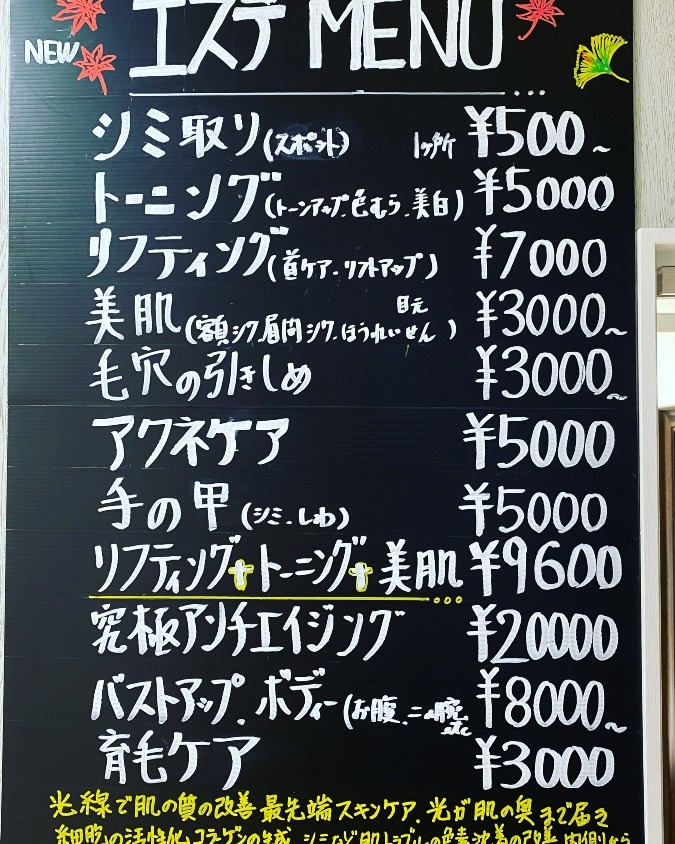 エステ MENU
NEW
シミ取り(スポット) 1ヶ所 ¥500~
トーニング(トーンアップ.色むら.美白) ¥5000
リフティング(首ケア.リフトアップ) ¥7000
美肌(額シワ.眉間シワ.ほうれいせん 目元) ¥3000~
毛穴の引きしめ ¥3000~
アクネケア ¥5000
手の甲(シミ.しわ) ¥5000
リフティング+トーニング+美肌 ¥9600
究極アンチエイジング ¥20000
バストアップ.ボディー(お腹.二の腕 etc ¥8000~
育毛ケア ¥3000
光線で肌の質の改善 最先端スキンケア.光が肌の奥まで届き
細胞の活性化 コラーゲンの生成 シミなど肌トラブルの色素沈着の改善 内側から